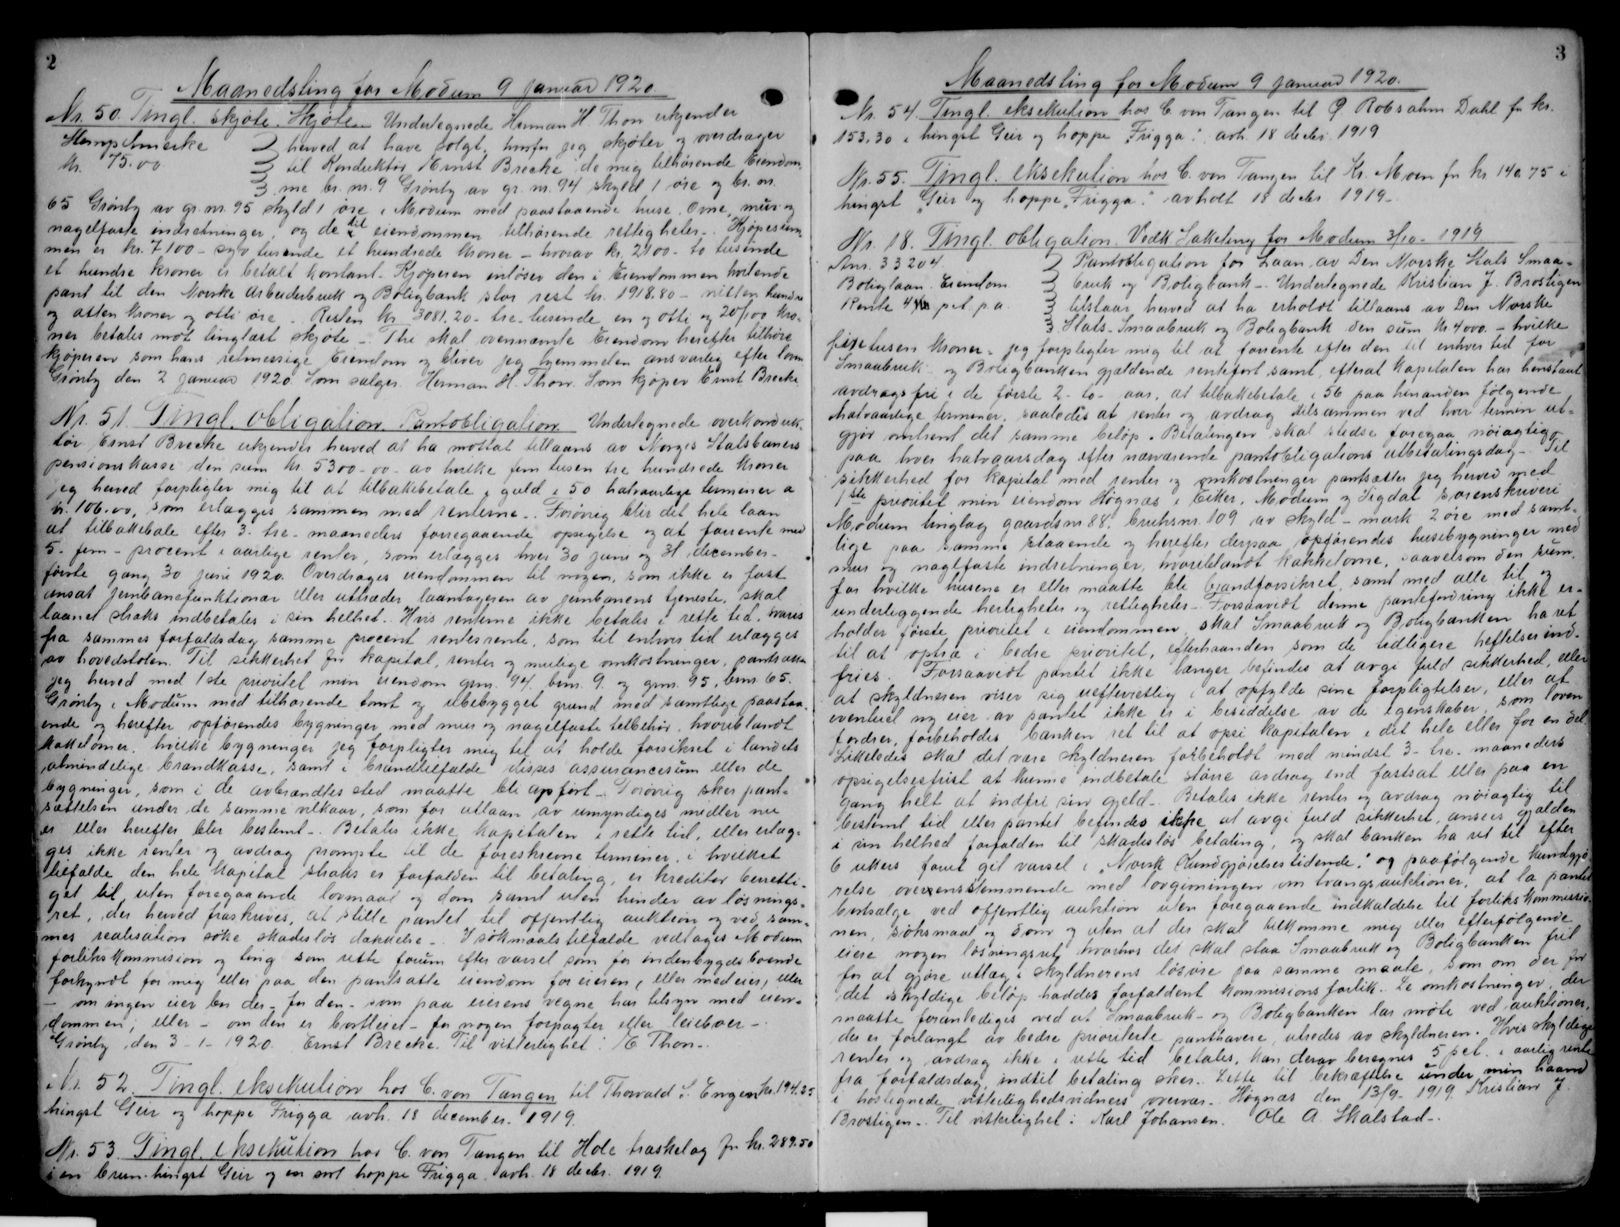 2
Maanedsting for Modum 9 januar 1920
Nr. 50. Tingl. skjøte. Skjøte. Undertegnede Herman H Thon erkjender
Stempelmerke herved at have solgt, hvorfor jeg skjøter og overdrager
kr. 75.00 til Konduktør Ernst Brecke de mig tilhørende Eiendom-
me br. nr. 9 Grønby av gr. nr. 94 skyld 1 øre og br. nr.
65 Grønby av gr. nr. 95 skyld 1 øre i Modum med paastaaende huse. Ovne, mur og
nagelfaste indretninger, og de til eiendommen tilhørende rettigheter. Kjøpesum
men er kr. 7100 - syv tusende et hundrede kroner - hvorav kr. 2100 - to tusende
et hundre kroner er betalt kontant. Kjøperen intløser den i Eiendommen heftende
pant til den Norske Arbeiderbruk og Boligbank stor rest kr. 1918.80 - nitten hundre
og atten kroner og otti øre - Resten kr. 3081.20 - tre tusende en og otti og 20/100 kro-
ner betales mot tinglæst skjøte - Thi skal ovennævnte Eiendom herefter tilhøre
kjøperen som hans retmæssige Eiendom og bliver jeg hjemmelen ansvarlig efter loven
Grønby den 2 januar 1920. Som sælger. Herman H. Thon. Som kjøper Ernst Brecke
Nr. 51. Tingl. obligation. Pantobligation. Undertegnede overkonduk-
tør Ernst Brecke erkjender herved at ha mottat tillaans av Norges Statsbaners
pensionskasse den sum kr. 5300-00 - av hvilke fem tusen tre hundrede kroner
jeg herved forpligter mig til at tilbakebetale i guld i 50 halvaarlige terminer a
kr. 106.00, som erlægges sammen med renterne - Forøvrig blir det hele laan
at tilbakebetale efter 3- tre- maaneders forregaaende opsigelse og at forrente med
5- fem - procent i aarlige renter, som erlægges hver 30 juni og 31 december -
første gang 30 juni 1920. Overdrages eiendommen til nogen, som ikke er fast
ansat jernbanefunktionær eller uttræder laantageren av jernbanens tjeneste, skal
laanet straks indbetales i sin helhet. Hvis renterne ikke betales i rette tid, svares
fra sammes forfaldsdag samme procent rentesrente, som til enhver tid erlægges
av hovedstolen. Til sikkerhet for kapital, renter og mulige omkostninger, pantsætter
jeg herved med 1ste prioritet min eiendom gnr. 94. bnr. 9. og gnr. 95, bnr. 65.
Grønby i Modum med tilhørende tomt og ubebygget grund med samtlige paastaa-
ende og herefter opførendes bygninger med mur og nagelfaste tilbehør, hvoriblandt
kakkelovner, hvilke bygninger jeg forpligter mig til at holde forsikret i landets
almindelige brandkasse, samt i brandtilfælde disses assurancesum eller de
bygninger, som i de avbrændtes sted maatte bli opført - Forøvrig sker pant-
sættelsen under de samme vilkaar, som for utlaan av umyndiges midler nu
er eller herefter blir bestemt - Betales ikke kapitalen i rette tid, eller erlæg-
ges ikke renter og avdrag prompte til de foreskrevne terminer, i hvilket
tilfælde den hele kapital straks er forfalden til betaling, er kreditor beretti-
get til, uten foregaaende lovmaal og dom samt uten hinder av løsnings-
ret, der herved fraskrives, at stille pantet til offentlig auktion og ved sam-
mes realisation søke skadesløs dækkelse - I søkmaalstilfælde vedtages Modum
forlikskommision og ting som rette forum efter varsel som for indenbygdsboende
forkyndt for mig eller paa den pantsatte eiendom for eieren, eller medeier, eller
- om ingen eier bor der - for den - som paa eierens vegne har tilsyn med eien-
dommen; eller - om den er bortleiet - for nogen forpagter eller leieboer -
Grønby den 3-1-1920. Ernst Brecke. Til vitterlighet: E Thon.
Nr. 52. Tingl. eksekution hos C. von Tangen til Thorvald S. Engen kr. 194.25
hingst Geir og hoppe Frigga avh. 18 december 1919.
Nr. 53. Tingl. eksekution hos C. von Tangen til Hole træskelag for kr. 289.50
i en brun hingst Geir og en sort hoppe Frigga. avh. 18 decbr. 1919.
3
Maanedsting for Modum 9 januar 1920.
Nr. 54. Tingl. eksekution hos C von Tangen til P. Robsahm Dahl for kr.
153.30 i hingst Geir og hoppe "Frigga". avh. 18 decbr. 1919
Nr. 55. Tingl. eksekution hos C. von Tangen til Kr. Moen for kr 140.75 i
hingst "Geir og hoppe "Frigga." avholt 18 decbr 1919.
Nr. 18. Tingl. obligation. Vedk Saketing for Modum 3/10 - 1919
Anr. 33204 Pantobligation for Laan av Den Norske Stats Smaa-
Boliglaan. Eiendom bruk og Boligbank - Undertegnede Kristian J. Brostigen
Rente 4 pct. p.a. tilstaar herved at ha erholdt tillaans av Den Norske
Stats - Smaabruk og Boligbank den sum kr 4000. - hvilke
fire tusen kroner - jeg forpligter mig til at forrente efter den til enhver tid for
Smaabruk - og Boligbanken gjældende rentefot samt, efterat kapitalen har henstaat
avdragsfri i de første 2 - to - aar, at tilbakebetale i 56 paa hinanden følgende
halvaarlige terminer, saaledes at renter og avdrag tilsammen ved hver termin ut-
gjør omtrent det samme beløp. Betalingen skal stedse foregaa nøiagtig
paa hver halvaarsdag efter nærværende pantobligations utbetalingsdag - Til
sikkerhed for kapital med renter og omkostninger pantsætter jeg herved med
1ste prioritet min eiendom Høgnæs i Eiker, Modum og Sigdal sorenskriveri
Modum tinglag gaardsnr 88. bruksnr. 109 av skyld - mark 2 øre med samt-
lige paa samme staaende og herefter derpaa opførendes husebygninger med
mur og nagelfaste indretninger, hvoriblandt kakkelovne, saavelsom den sum,
for hvilke husene er eller maatte bli brandforsikret, samt med alle til og
underliggende herligheter og rettigheter - Forsaavidt denne pantefordring ikke er-
holder første prioritet i eiendommen, skal Smaabruk og Boligbanken ha ret
til at optræ i bedre prioritet, efterhaanden som de tidligere heftelser ind-
fries. Forsaavidt pantet ikke længer befindes at avgi fuld sikkerhed, eller
at skyldneren viser sig uefterrettlig i at opfylde sine forpligtelser, eller at
eventuel ny eier av pantet ikke er i besiddelse av de egenskaber, som loven
fordrer, forbeholdes banken ret til at opsi kapitalen i det hele eller for en del
Likeledes skal det være skyldneren forbeholdt med mindst 3 - tre - maaneders
opsigelsesfrist at kunne indbetale større avdrag end fastsat eller paa en
gang helt at indfri sin gjeld - Betales ikke renter og avdrag nøiagtig til
bestemt tid eller pantet befindes ikke at avgi fuld sikkerhet, ansees gjælden
i sin helhed forfalden til skadesløs betaling, og skal banken ha ret til efter
6 ukers forut git varsel i "Norsk Kundgjørelsestidende." og paafølgende kundgjø-
relse overensstemmende med lovgivningen om tvangsauktioner, at la pantet
bortsælge ved offentlig auktion uten foregaaende indkaldelse til forlikskommissio-
nen, søksmaal og dom og uten at der skal tilkomme mig eller efterfølgende
eiere nogen løsningsret, hvorhos det skal staa Smaabruk og Boligbanken frit
for at gjøre utlæg i skyldnerens løsøre paa samme maate, som om der for
det skyldige beløp haddes forfaldent kommisions forlik. De omkostninger, der
maatte foranlediges ved at Smaabruk - og Boligbanken lar møte ved auktioner,
der er forlangt av bedre prioriterte panthavere, utredes av skyldneren. Hvis skyldige
renter og avdrag ikke i rette tid betales, kan derav beregnes 5 pct. i aarlig rente
fra forfaldsdag indtil betaling sker. Dette til bekræftelse under min haand
i hostegnede vitterlighedsvidners overvær. Høgnæs den 13/9 - 1919. Kristian J.
Brostigen - Til vitterlighet: Karl Johansen. Ole A Skalstad -